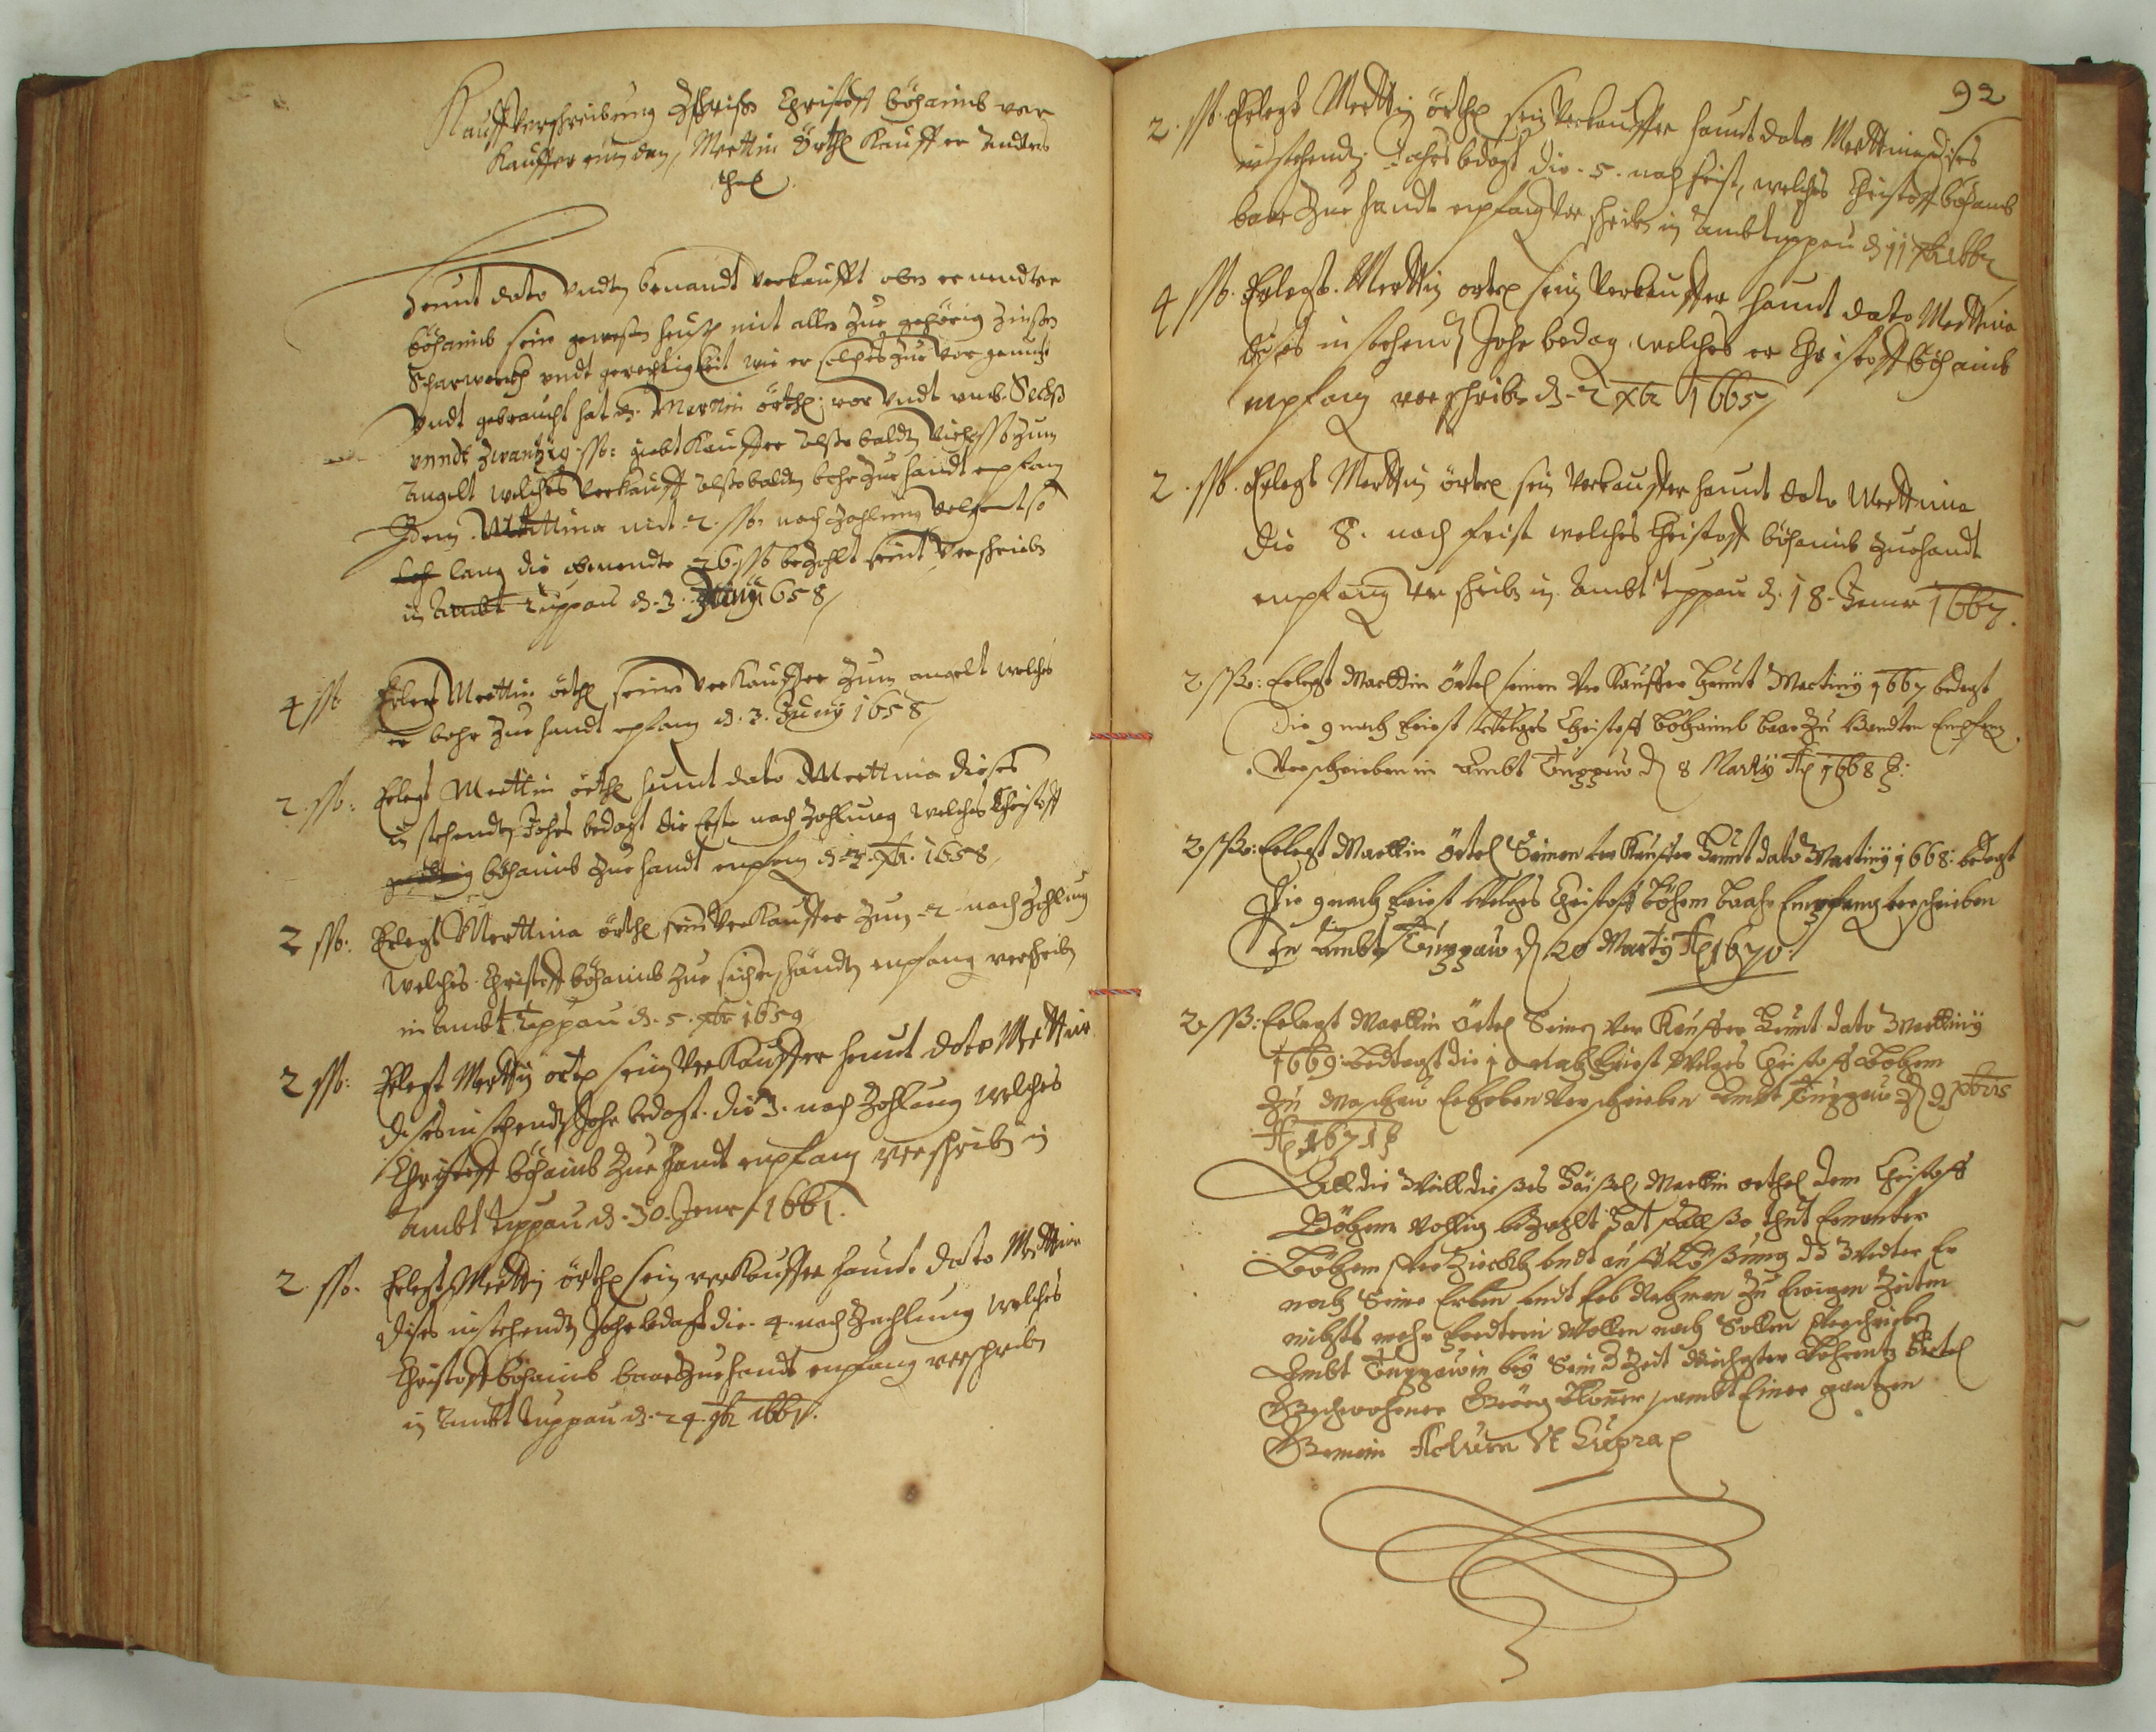 Kauffverschreibung Zwischen Christoff böhaimb ver
Kauffer ein dan, Merttin Örthl Kauffer andres
theil
Heunt dato undten benandt verkaufft oben ernendter
böhaimb sein gewesen heußl mit allen Zue gehörig Zinßen
Scharwerckh undt gerechtigkeit wie er solches Zue vor genutzt
undt gebraucht hat d. Merttin örthl: vor undt umb Sechs
unndt Zwantzig ssß: gibt Kauffer alßo baldten Vier ssß Zum
Angelt welches Verkauff alßobaldten bohr Zue handt empfang
Dem Merttina mit 2 ssß nach Zahlung
lang die obenendte 26 ssß bezohlt seint Verschrieben
in Ambt Tuppau d. 3. Juny 658
4 ssß Erlegt Merttin örthl seinen verKauffer Zum angelt welches
er bohr Zue handt epfang d. 3. Juny 1658
2. ssß: Erlegt Merttin örthl heunt dato Merttina dieses
in stehendten Johrs bedagt die Erste nach Zohlung welches Christoff
böhaimb Zue handt empfang d. 3. Xbr. 1658
2 ssß: Erlegt Merttina örthl sein verKauffer Zum 2 nach Zohlung
welches Christoff böhaimb Zue sichern händten empfang verschriben
in Ambt Tuppau d. 5. Xbr 1659
2 ssß: Erlegt Merttin örtl sein verKauffer heunt dato Merttina
dises in stehendten Johr bedagt. die 3. nach Zohlung welches
Christoff böhaimb Zue handt empfang verschriben in
Ambt Tuppau d. 30. Jenr 1661.
2. ssß. Erlegt Merttin örthl sein verkauffer heunt dato Merttina
dises instehendten Johr bedagt die. 4. nach Zachlung welches
Christoff böhaimb baar Zue handt empfang verschriben
in Ambt Tuppau d. 24. 1661.
92
2. ssß. Erlegt Merttin örthl sein Verkauffer heunt dato Merttina dises
in stehendten Jahrs bedagt die. 5. nach frist, welches Christoff böhaimb
baar Zue handt empfang Verschriben in Ambt Tuppau d 11
4 ssß. Erlegt. Merttin ortel sein Verkauffer heunt dato Merttina
dises in stehendten Johr bedag welches er Christoff böhaimb
empfang verschriben d. 2 Xbr 1665
2. ssß. Erlegt Merttin örtel sein Verkauffer heunt dato Merttina
die 8. nach frist welches Christoff böhaimb Zue handt
empfang Verschriben in Ambt Tuppau d. 18. Jenner 1667.
2 ssß: Erlegt Marttin Örtel seinen Ver Kauffer heunt Martiny 1667 bedagt
Die 9 nach Friest Welches Christoff Böhaimb baar Zu Handten Empfang
Verschrieben in Ambt Tuppau d 8 Marty A 1668
2 ssß: Erlegt Marttin Örtel Seinen ver Kauffer Heunt dato Martiny 1668: bedagt
Die 9 nach Friest Welches Christoff Böhem baahr Empfang verschrieben
In Ambt Tuppau d 20 Marty A 1670:
2 ssß: Erlegt Marttin Örtel Seinen Ver Kauffer Heunt dato Marttiny
1669: Bedtagt die 10 Nach Friest Welches Christoff Böhem
Zu Maschau Erhoben Verschrieben Ambt Tuppau d 9 Xbris
A 1671
All die Weill dießes Heüßel Marttin orthel dem Christoff
Böhem Vollig bezahlt hat solches thut Ernenter
Böhem Verziehen undt Weder Er
noch Seine Erben undt Erb Nehmen Zu Ewigen Zeiten
nichts mehr fordtern Wollen noch Sollen Verschrieben
Ambt Tuppau in bey Sein d Zeit Richter
Geschwohrner Geörg sambt Einer gantzen
Gemein